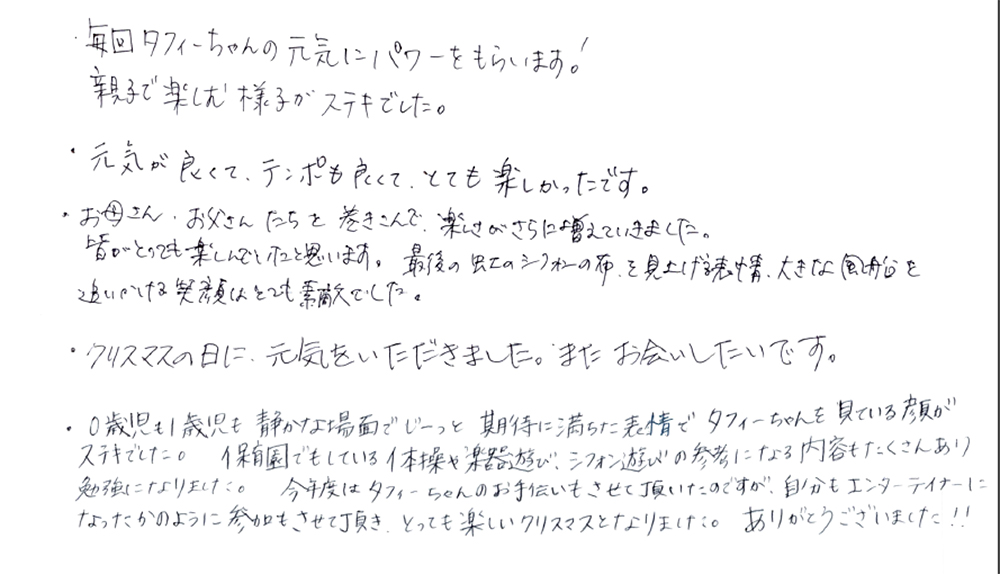 ・毎回タフィーちゃんの元気にパワーをもらいます!
親子で楽しむ様子がステキでした。
・元気が良くて、テンポも良くて、とても楽しかったです。
・お母さん・お父さんたちを巻きこんで、楽しさがさらに増えていきました。
皆がとっても楽しんでいたと思います。最後の虹のシフォンの布を見上げる表情、大きな風船を
追いかける笑顔はとても素敵でした。
・クリスマスの日に、元気をいただきました。またお会いしたいです。
・0歳児も1歳児も静かな場面でじーっと期待に満ちた表情でタフィーちゃんを見ている顔が
ステキでした。保育園でもしている体操や楽器遊び、シフォン遊びの参考になる内容もたくさんあり
勉強になりました。今年度はタフィーちゃんのお手伝いもさせて頂いたのですが、自分もエンターテイナーに
なったかのように参加もさせて頂き、とっても楽しいクリスマスとなりました。ありがとうございました!!